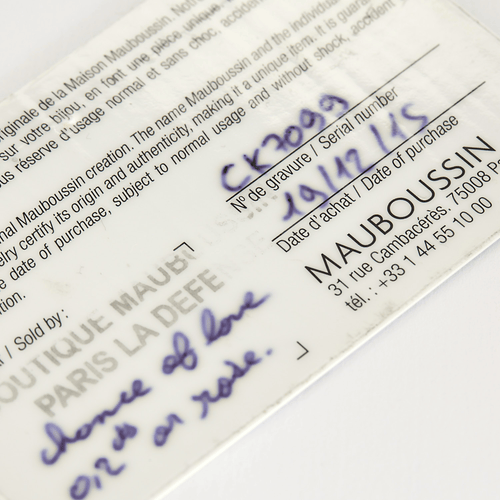 orignale de la Maison Mauboussin.
sur votre bijou, en font une pièce unique.
sous réserve d'usage normal et sans choc,
Mauboussin creation. The name Mauboussin and the individual
certify its origin and authenticity, making it a unique item. It is
date of purchase, subject to normal usage and without shock,
CK7099
N° de gravure / Serial number
19/12/15
Date d'achat / Date of purchase
MAUBOUSSIN
31 rue Cambacérès. 75008
tél. : +33 1 44 55 10 00
/ Sold by :
BOUTIQUE MAUB
PARIS LA DEFE
chance of love
0,12 cts or rose.